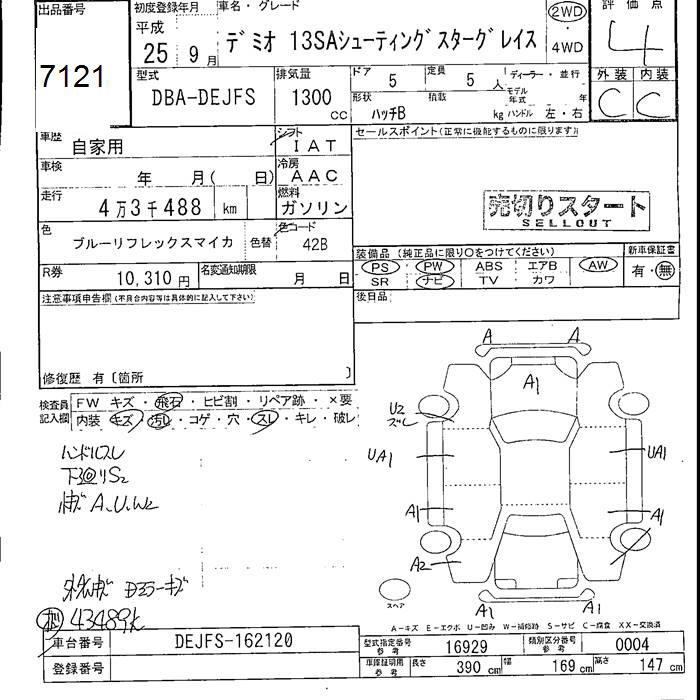 出品番号
7121
初度登録年月 車名・グレード
平成
25 9月
デミオ 13SAシューティングスターグレイス
2WD
・
4WD
評価点
4
型式
DBA-DEJFS
排気量
1300
CC
ドア 5 定員 5 人
ディーラー・並行
モデル年式 年
形状 ハッチB 積載 kg ハンドル 左・右
外装 内装
C C
車歴 自家用
シフト IAT
車検 年 月( 日)
冷房 AAC
走行 4万3千488 km
燃料 ガソリン
色 ブルーリフレックスマイカ 色替
色コード 42B
R券 10,310円
名変通知期限 月 日
セールスポイント(正常に機能するものに限ります)
売切りスタート
SELLOUT
装備品(純正品に限り○をつけてください)
PS PW ABS エアB AW
SR ナビ TV カワ
新車保証書
有・無
後日品
注意事項申告欄(不具合内容等は具体的に記入して下さい)
修復歴 有〔箇所 〕
検査員記入欄
FW キズ・飛石・ヒビ割・リペア跡・×要
内装 キズ・汚れ・コゲ・穴・スレ・キレ・破レ
ハンドルスレ
下廻りS2
A.U.W2
43489K
A A
A1
U2
スレ
UA1 UA1
A1 A1
A2
A1 A1
スペア
A-キズ E-エクボ U-凹み W-補修跡 S-サビ C-腐食 XX-交換済
車台番号 DEJFS-162120
登録番号
型式指定番号 参考 16929
類別区分番号 参考 0004
車庫証明用 参考 長さ 390 cm 幅 169 cm 高さ 147 cm